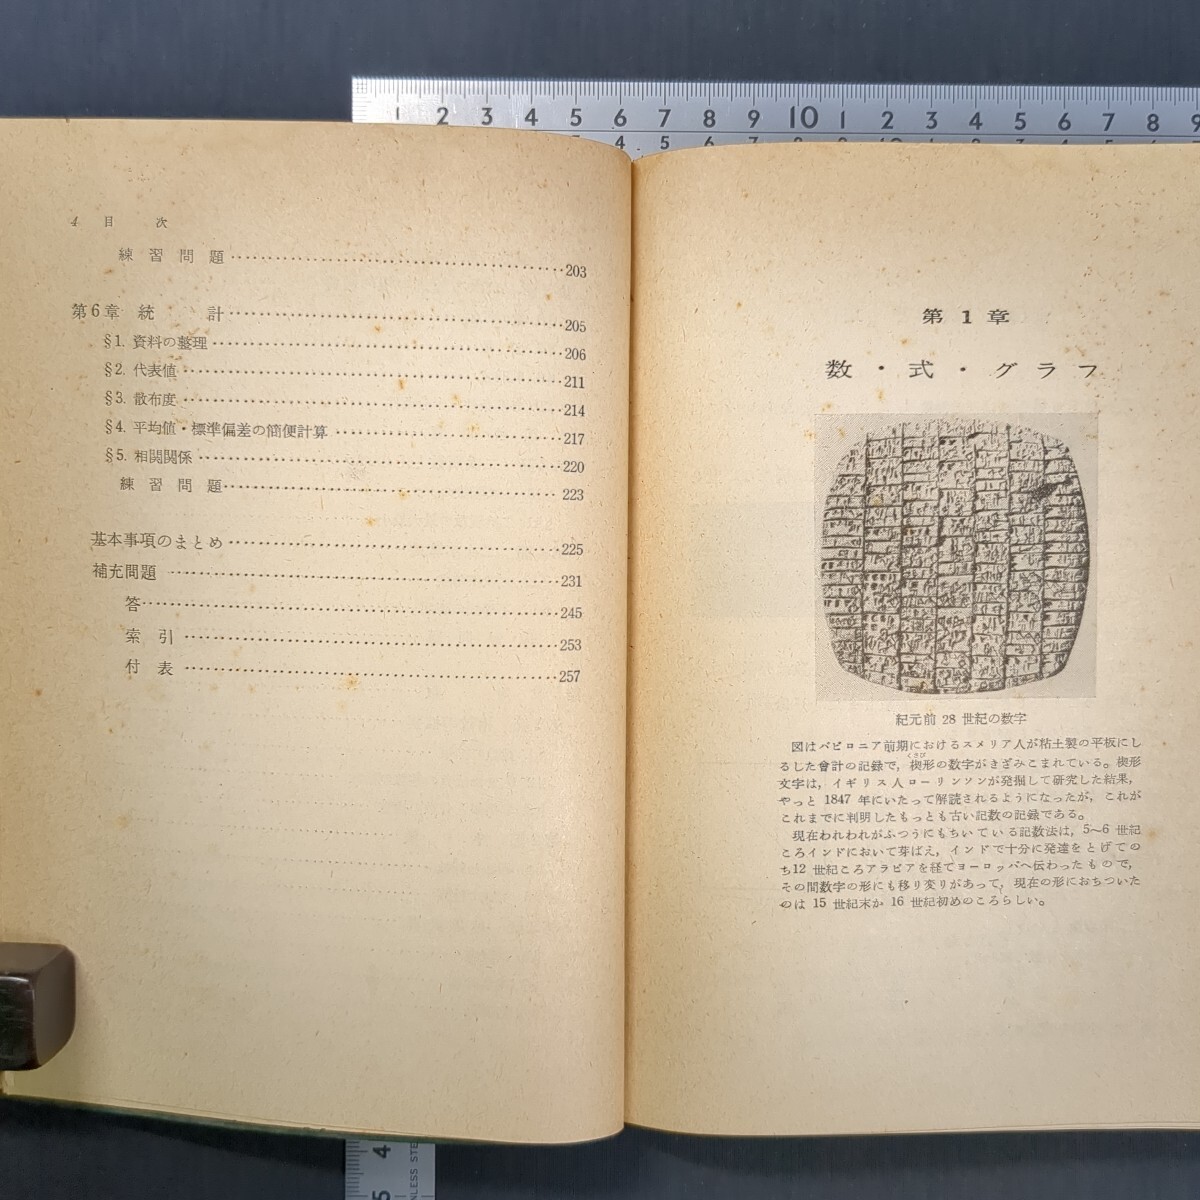 1 2 3 4 5 6 7 8 9 10 1 2 3 4 5 6 7 8 9
4 目 次
練 習 問 題 203
第6章 統 計 205
§1. 資料の整理 206
§2. 代表値 211
§3. 散布度 214
§4. 平均値・標準偏差の簡便計算 217
§5. 相関関係 220
練 習 問 題 223
基本事項のまとめ 225
補充問題 231
答 245
索 引 253
付 表 257
第 1 章
数・式・グラフ
紀元前 28 世紀の数字
図はバビロニア前期におけるスメリア人が粘土製の平板にし
るした會計の記録で，楔形の数字がきざみこまれている。楔形
くさび
文字は，イギリス人ローリンソンが発掘して研究した結果，
やっと 1847 年にいたって解読されるようになったが，これが
これまでに判明したもっとも古い記数の記録である。
現在われわれがふつうにもちいている記数法は，5〜6 世紀
ころインドにおいて芽ばえ，インドで十分に発達をとげての
ち12 世紀ころアラビアを経てヨーロッパへ伝わったもので，
その間数字の形にも移り変りがあって，現在の形におちついた
のは 15 世紀末か 16 世紀初めのころらしい。
4
5
NLESS STE